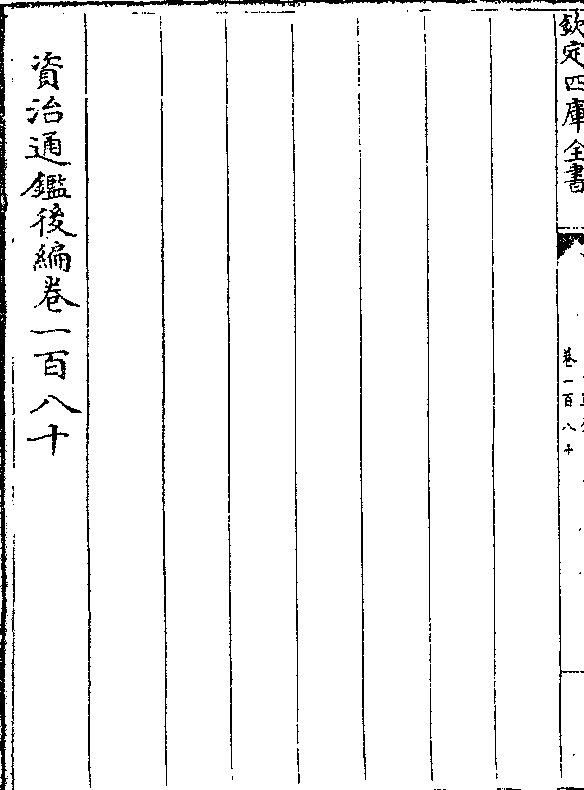 欽定四庫全書
卷一百八十
資治通鑑後編卷一百八十